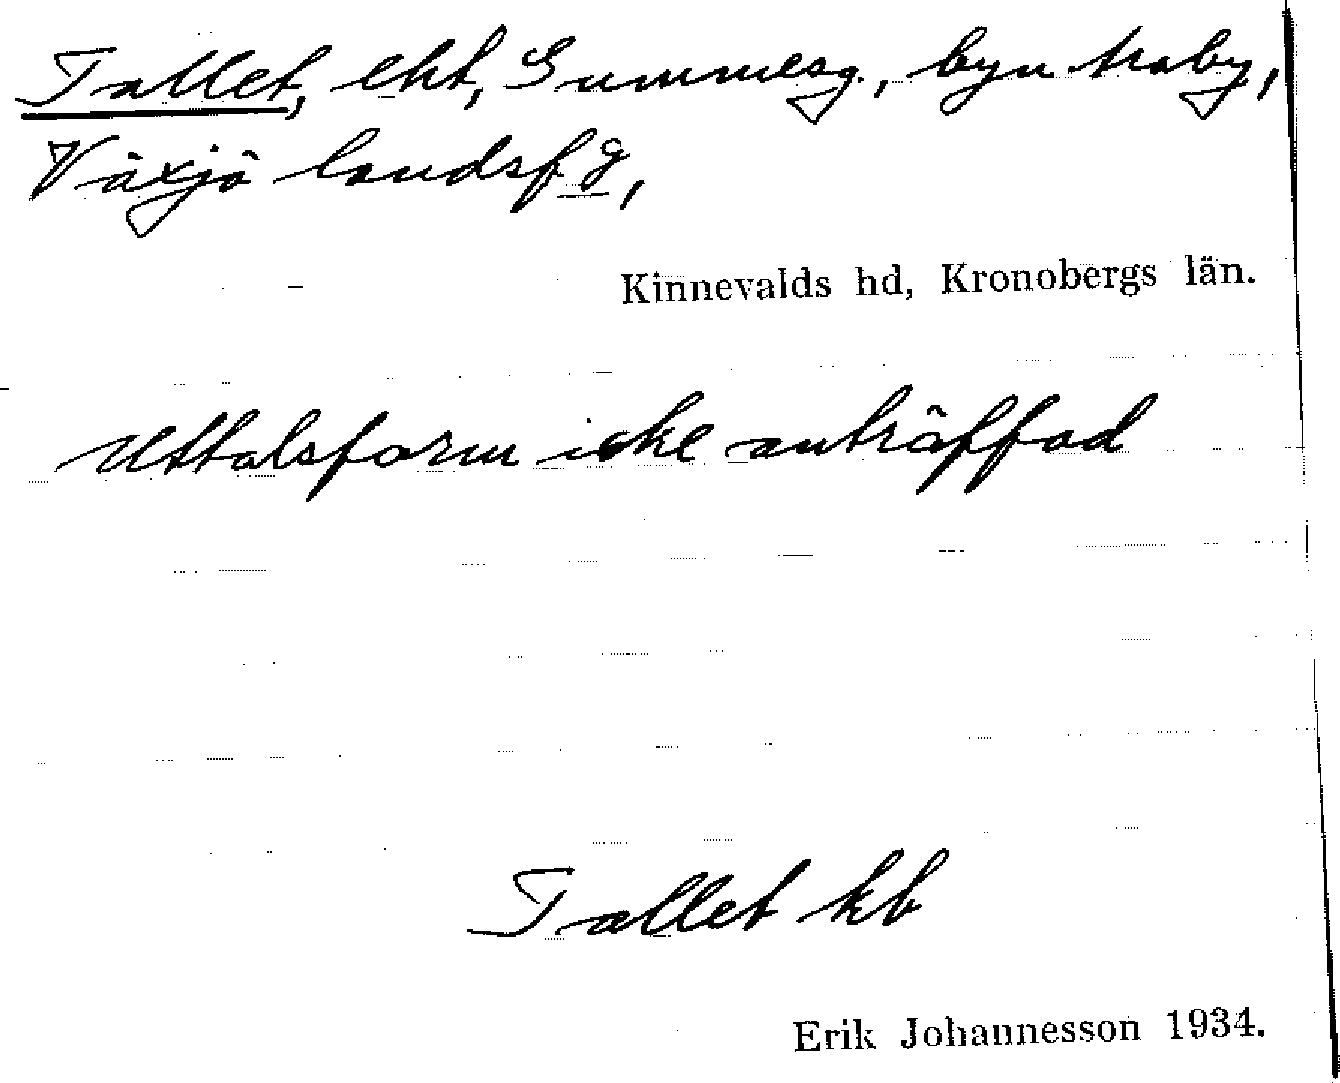 Tallet, lht, Gummesg., byn Araby,
Växjö landsfg,
Kinnevalds hd, Kronobergs län.
Uttalsform icke anträffad
Tallet kb
Erik Johannesson 1934.